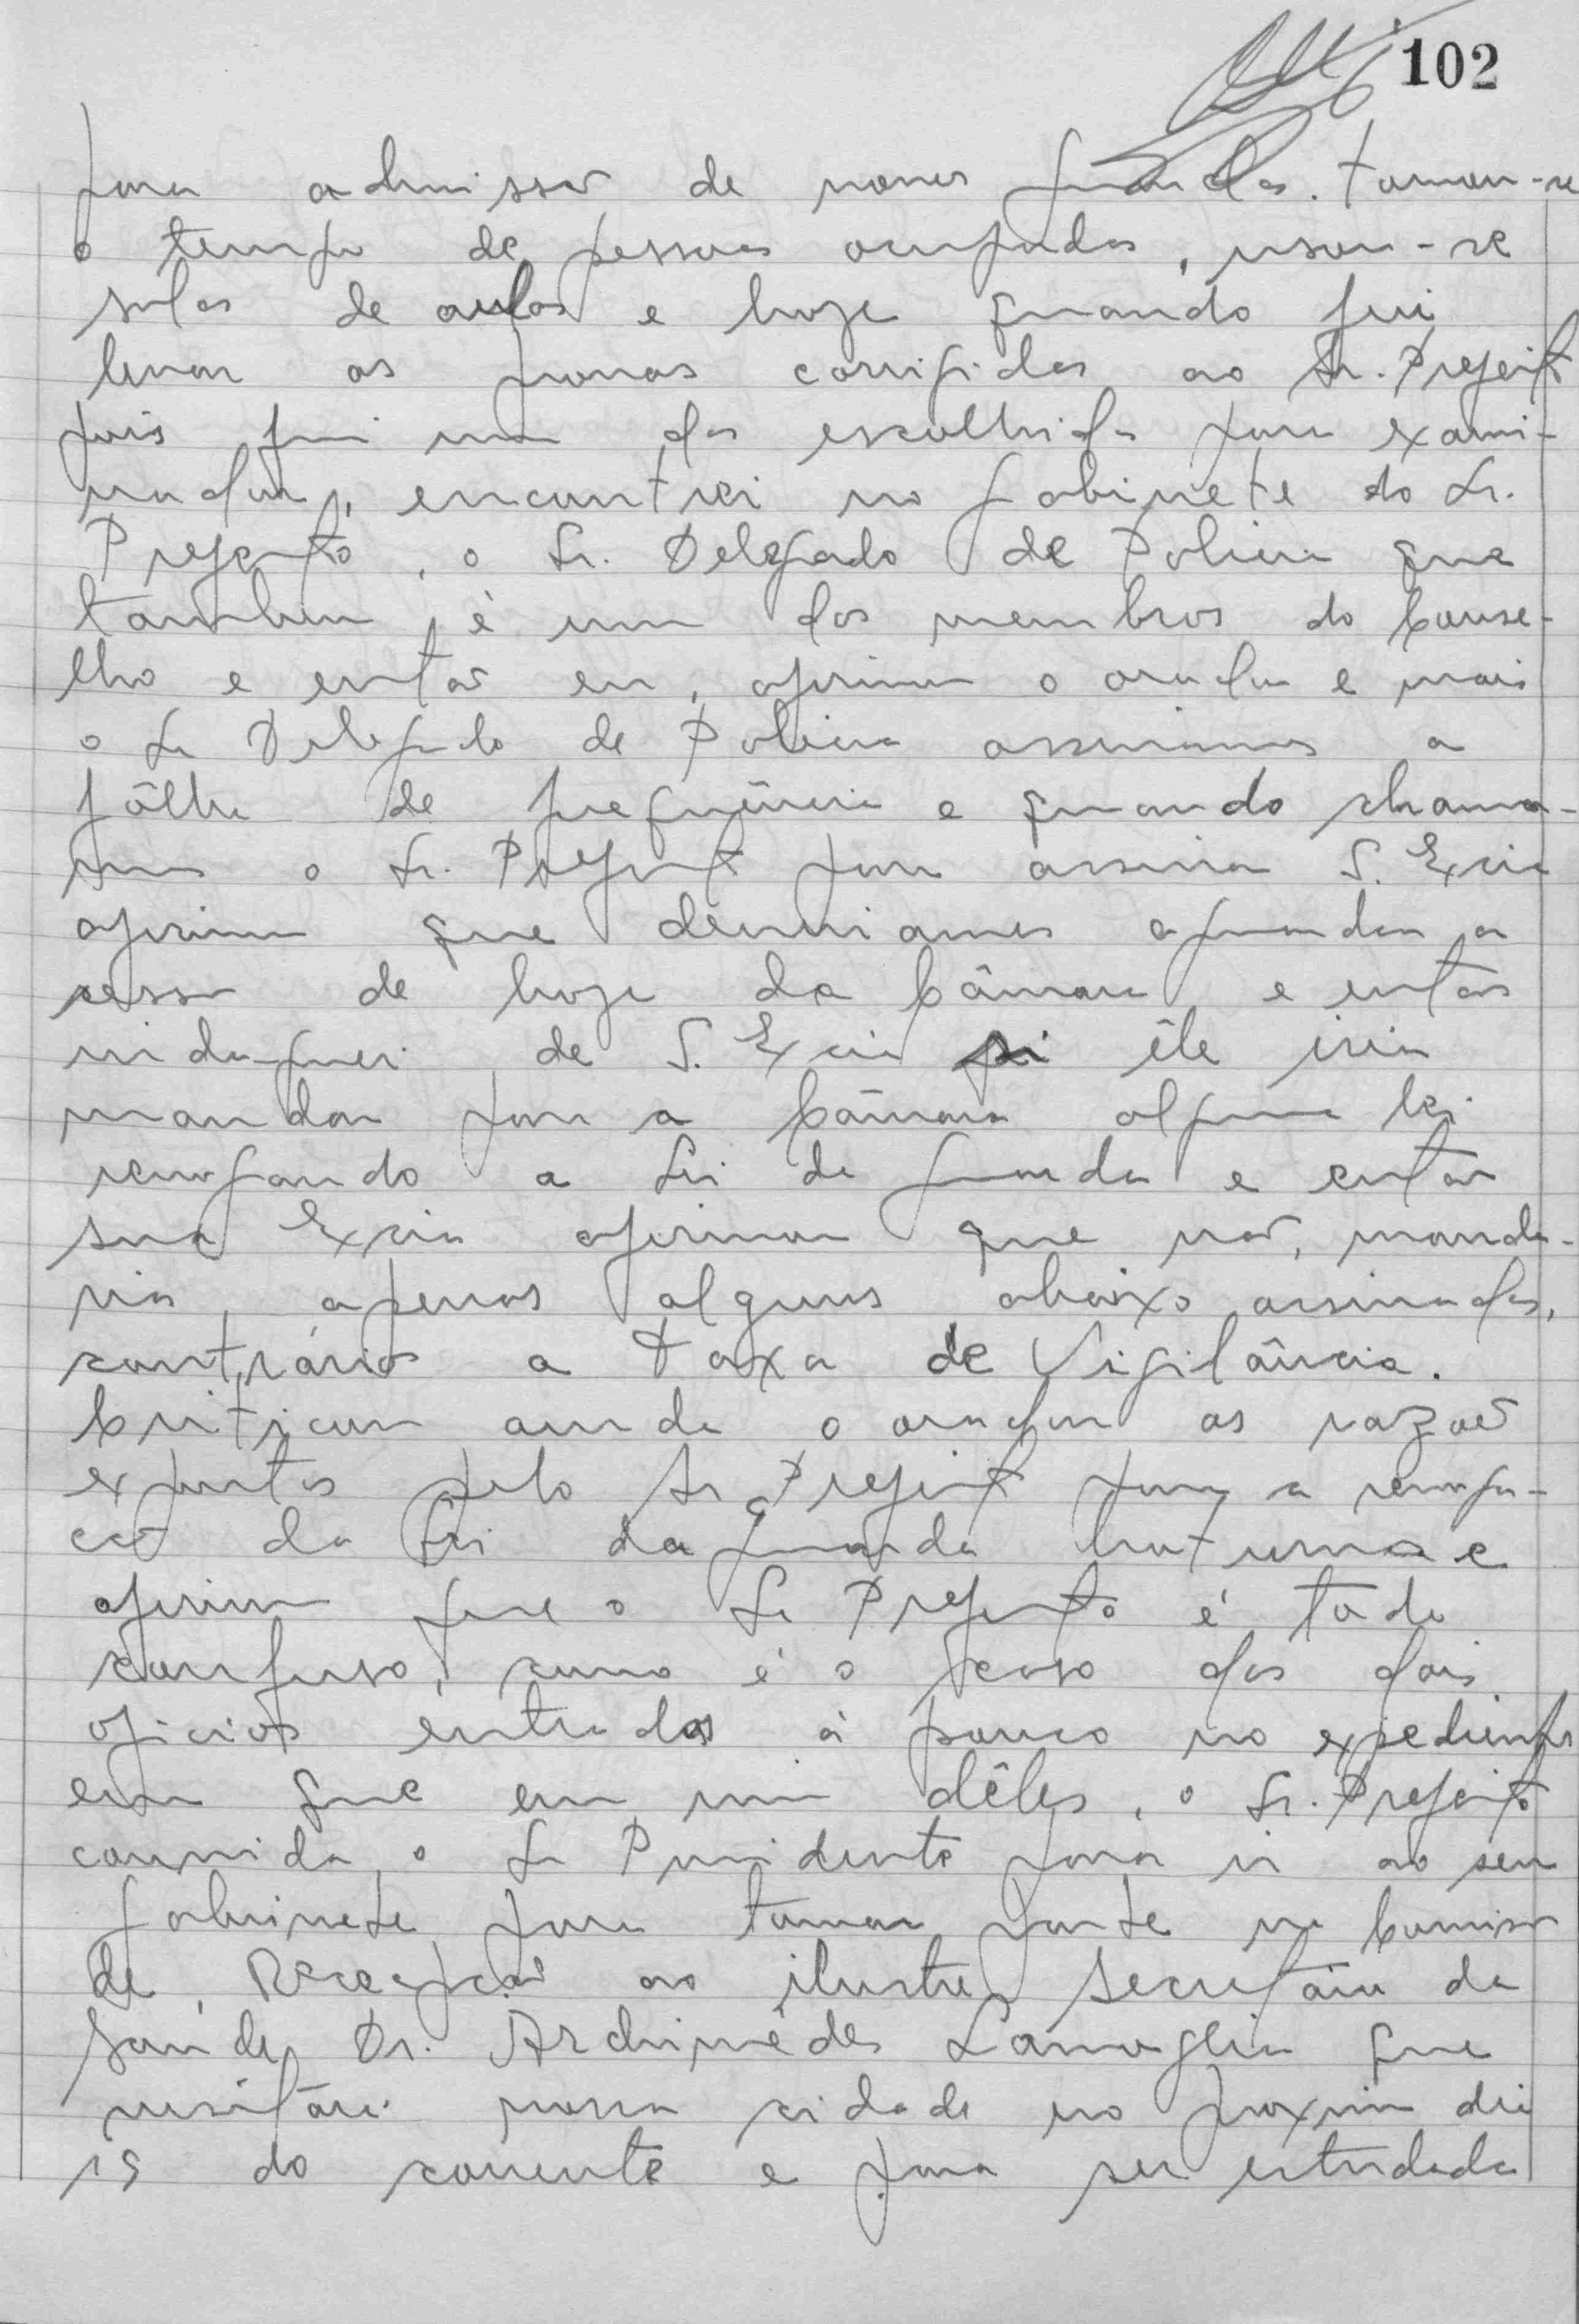 102
para admissão de novos guardas. tomou-se
o tempo de pessoas ocupadas, usou-se
salas de aulas e hoje quando fui
levar as provas corrigidas ao Sr. Prefeito
pois fui um dos escolhidos para exami-
nador, encontrei no gabinete do Sr.
Prefeito, o Sr. Delegado de Policia que
tambem, é um dos membros do Conse-
lho e então eu, afirma o orador e mais
o Sr Delegado de Policia assinamos a
fôlha de frequência e quando chama-
mos o Sr. Prefeito para assinar S. Excia
afirmou que deveriamos aguardar a
sessão de hoje da Câmara e então
indaguei de S. Excia si êle iria
mandar para a Câmara alguma lei
revogando a Lei da guarda e então
sua Excia afirmou que não, manda-
ria, apenas alguns abaixo assinados,
contrários a Taxa de Vigilância.
Criticou ainda o orador as razões
expostas pelo Sr Prefeito para a revoga-
ção da Lei da guarda Noturna e
afirma que o Sr Prefeito é todo
confuso, como é o caso dos dois
oficios entrados à pouco no expediente
em que em um dêles, o Sr. Prefeito
convida o Sr Presidente para ir ao seu
gabinete para tomar parte na Comissão
de Recepção ao ilustre Secretário da
Saúde, Dr. Archimédes Lamoglia que
visitará nossa cidade no proximo dia
19 do corrente e para ser estudada